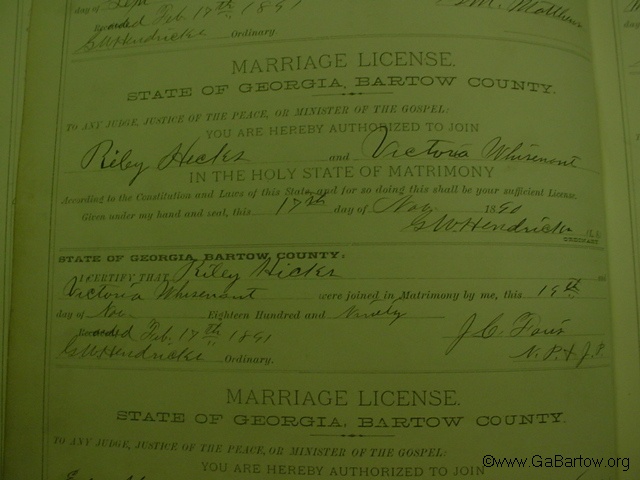 day of Sept
Esm. Matthews
Recorded Feb. 17th 1891
G W Hendricks Ordinary.
MARRIAGE LICENSE.
STATE OF GEORGIA, BARTOW COUNTY.
TO ANY JUDGE, JUSTICE OF THE PEACE, OR MINISTER OF THE GOSPEL:
YOU ARE HEREBY AUTHORIZED TO JOIN
Riley Hicks and Victoria Whisenant
IN THE HOLY STATE OF MATRIMONY
According to the Constitution and Laws of this State, and for so doing this shall be your sufficient License.
Given under my hand and seal, this 17th day of Nov. 1890
G W Hendricks
ORDINARY.
STATE OF GEORGIA, BARTOW COUNTY:
I CERTIFY THAT Riley Hicks and
Victoria Whisenant were joined in Matrimony by me, this 19th
day of Nov. Eighteen Hundred and Ninety
Recorded Feb. 17th 1891 J. C.
G W Hendricks Ordinary. N. P. & J. P.
MARRIAGE LICENSE.
STATE OF GEORGIA, BARTOW COUNTY.
TO ANY JUDGE, JUSTICE OF THE PEACE, OR MINISTER OF THE GOSPEL:
YOU ARE HEREBY AUTHORIZED TO JOIN
©www.GaBartow.org